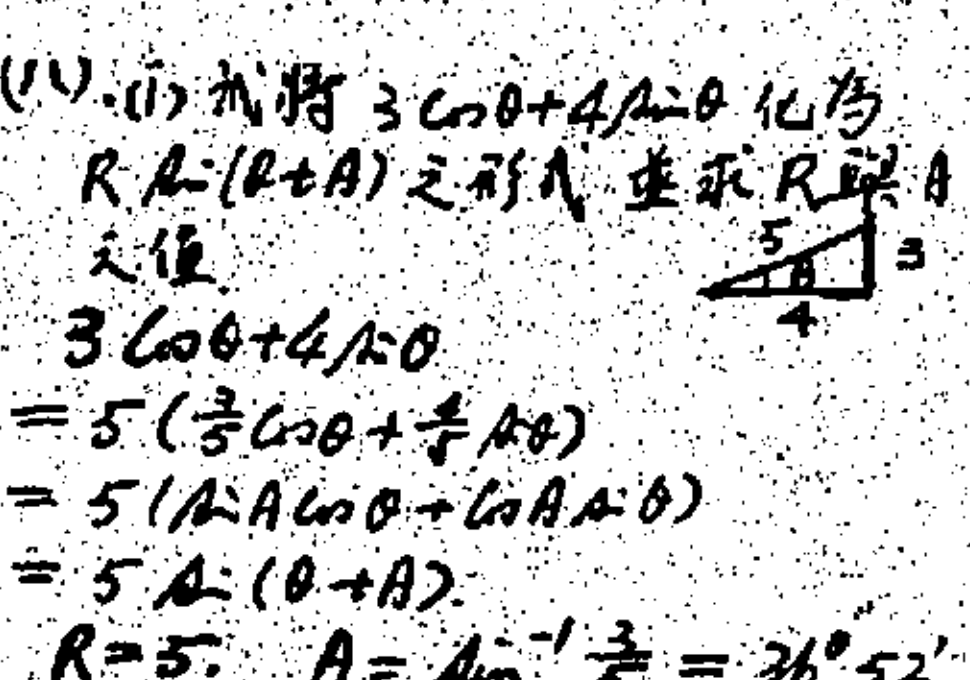 (八).(i) 試將 3 cosθ+4 sinθ 化為
R sin(θ+A) 之形式 並求 R 與 A
之值.
5
θ
3
4
3 cosθ+4 sinθ
= 5 (3/5 cosθ + 4/5 sinθ)
= 5 (sinA cosθ + cosA sinθ)
= 5 sin (θ+A).
R=5. A = sin⁻¹ 3/5 = 36° 52'